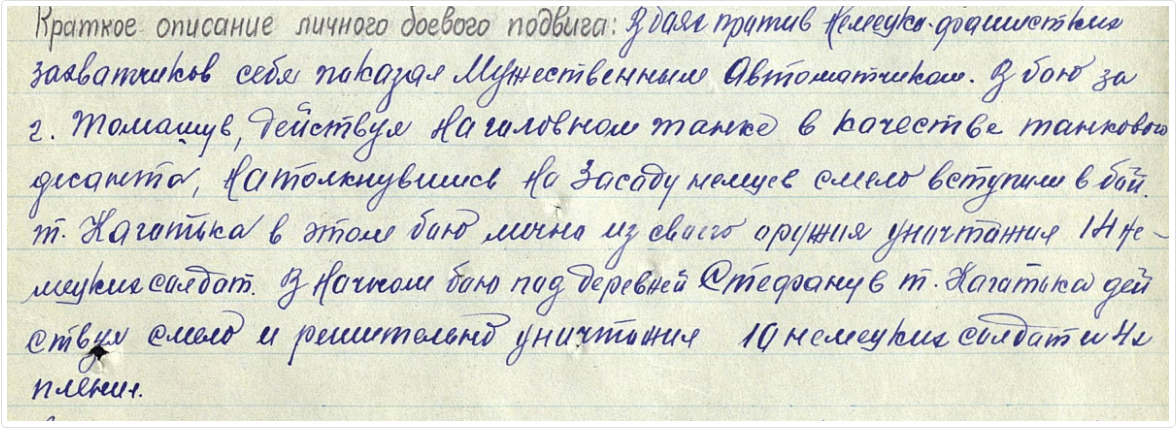 Краткое описание личного боевого подвига: В боях против Немецко-фашистких
захватчиков себя показал Мужественным Автоматчиком. В бою за
г. Томашув, действуя на головном танке в качестве танкового
десанта, Натолкнувшись на Засаду немцев смело вступили в бой.
т. Нагатька в этом бою лично из своего оружия уничтажил 14 не-
мецких салдат. В Начном бою под деревней Стефанув т. Нагатька дей
ствуя смело и решительно уничтажил 10 немецких салдат и 4х
пленил.